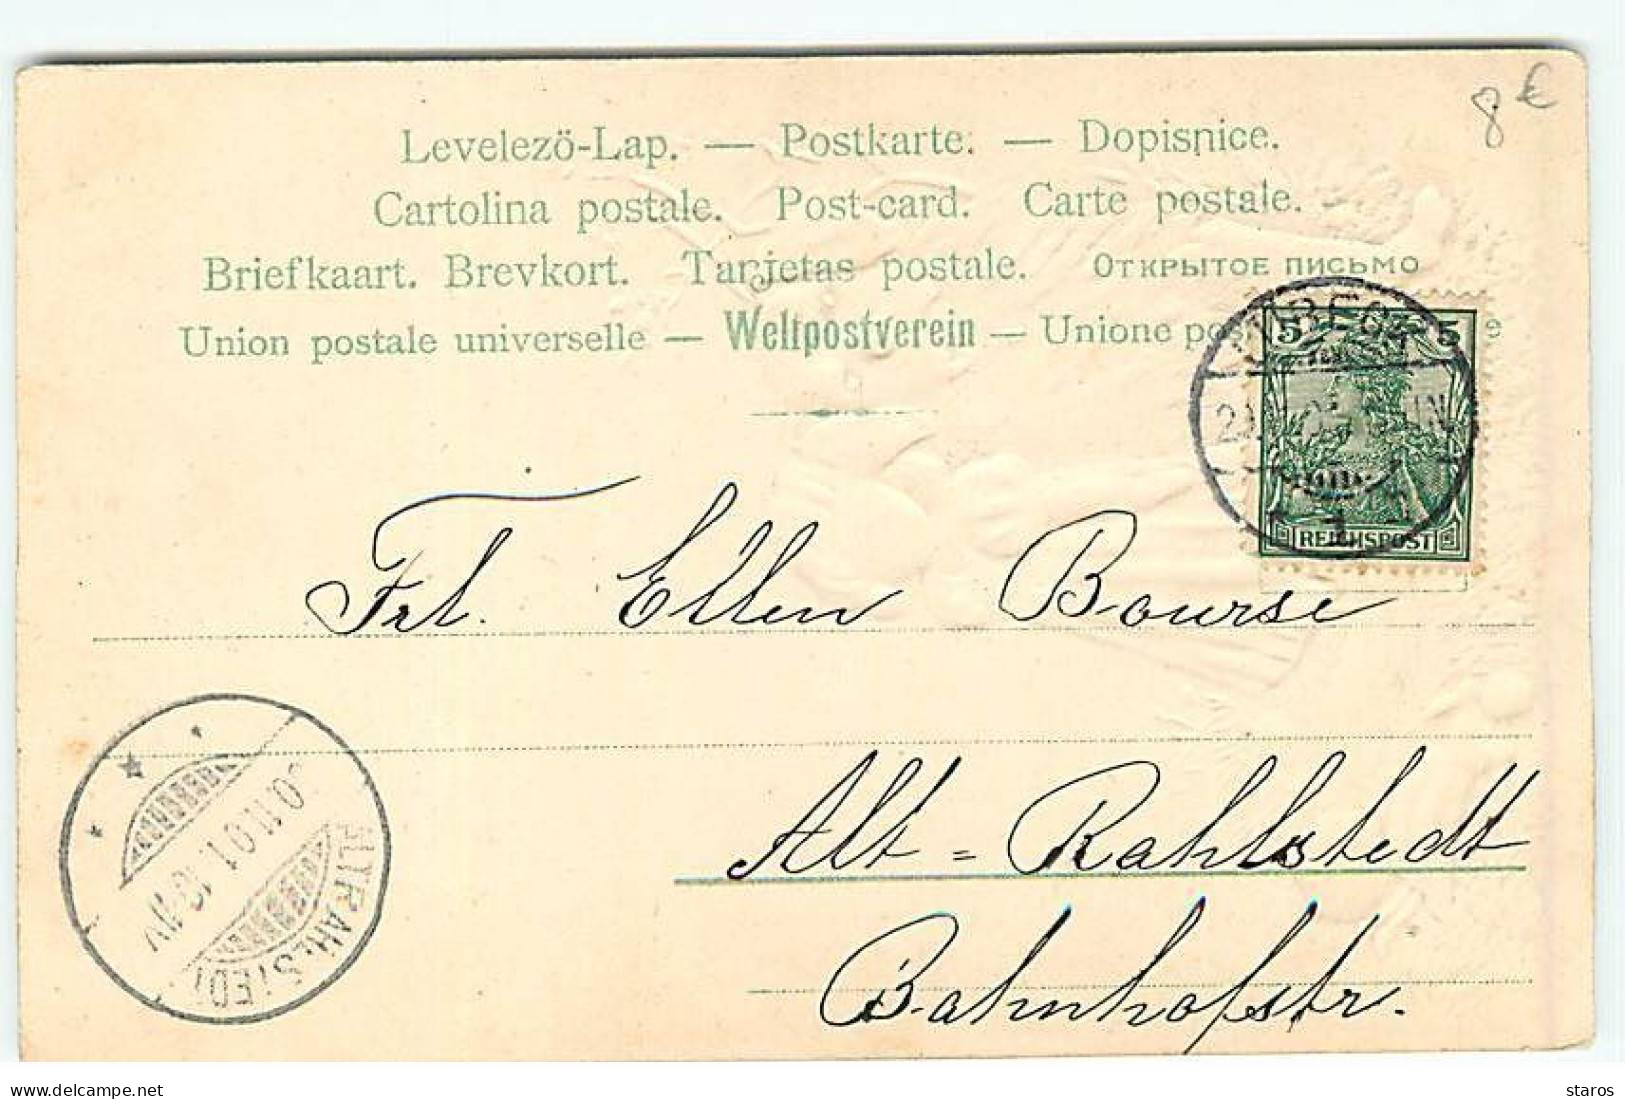 8 €
Levelezö-Lap. — Postkarte. — Dopisnice.
Cartolina postale. Post-card. Carte postale.
Briefkaart. Brevkort. Tarjetas postale. Открытое письмо
Union postale universelle — Weltpostverein — Unione pos e
5 5
REICHSPOST
1
Frl. Ellen Bourse
Alt-Rahlstedt
Bahnhofstr.
ALTRAHLSTEDT
delcampe.net
staros